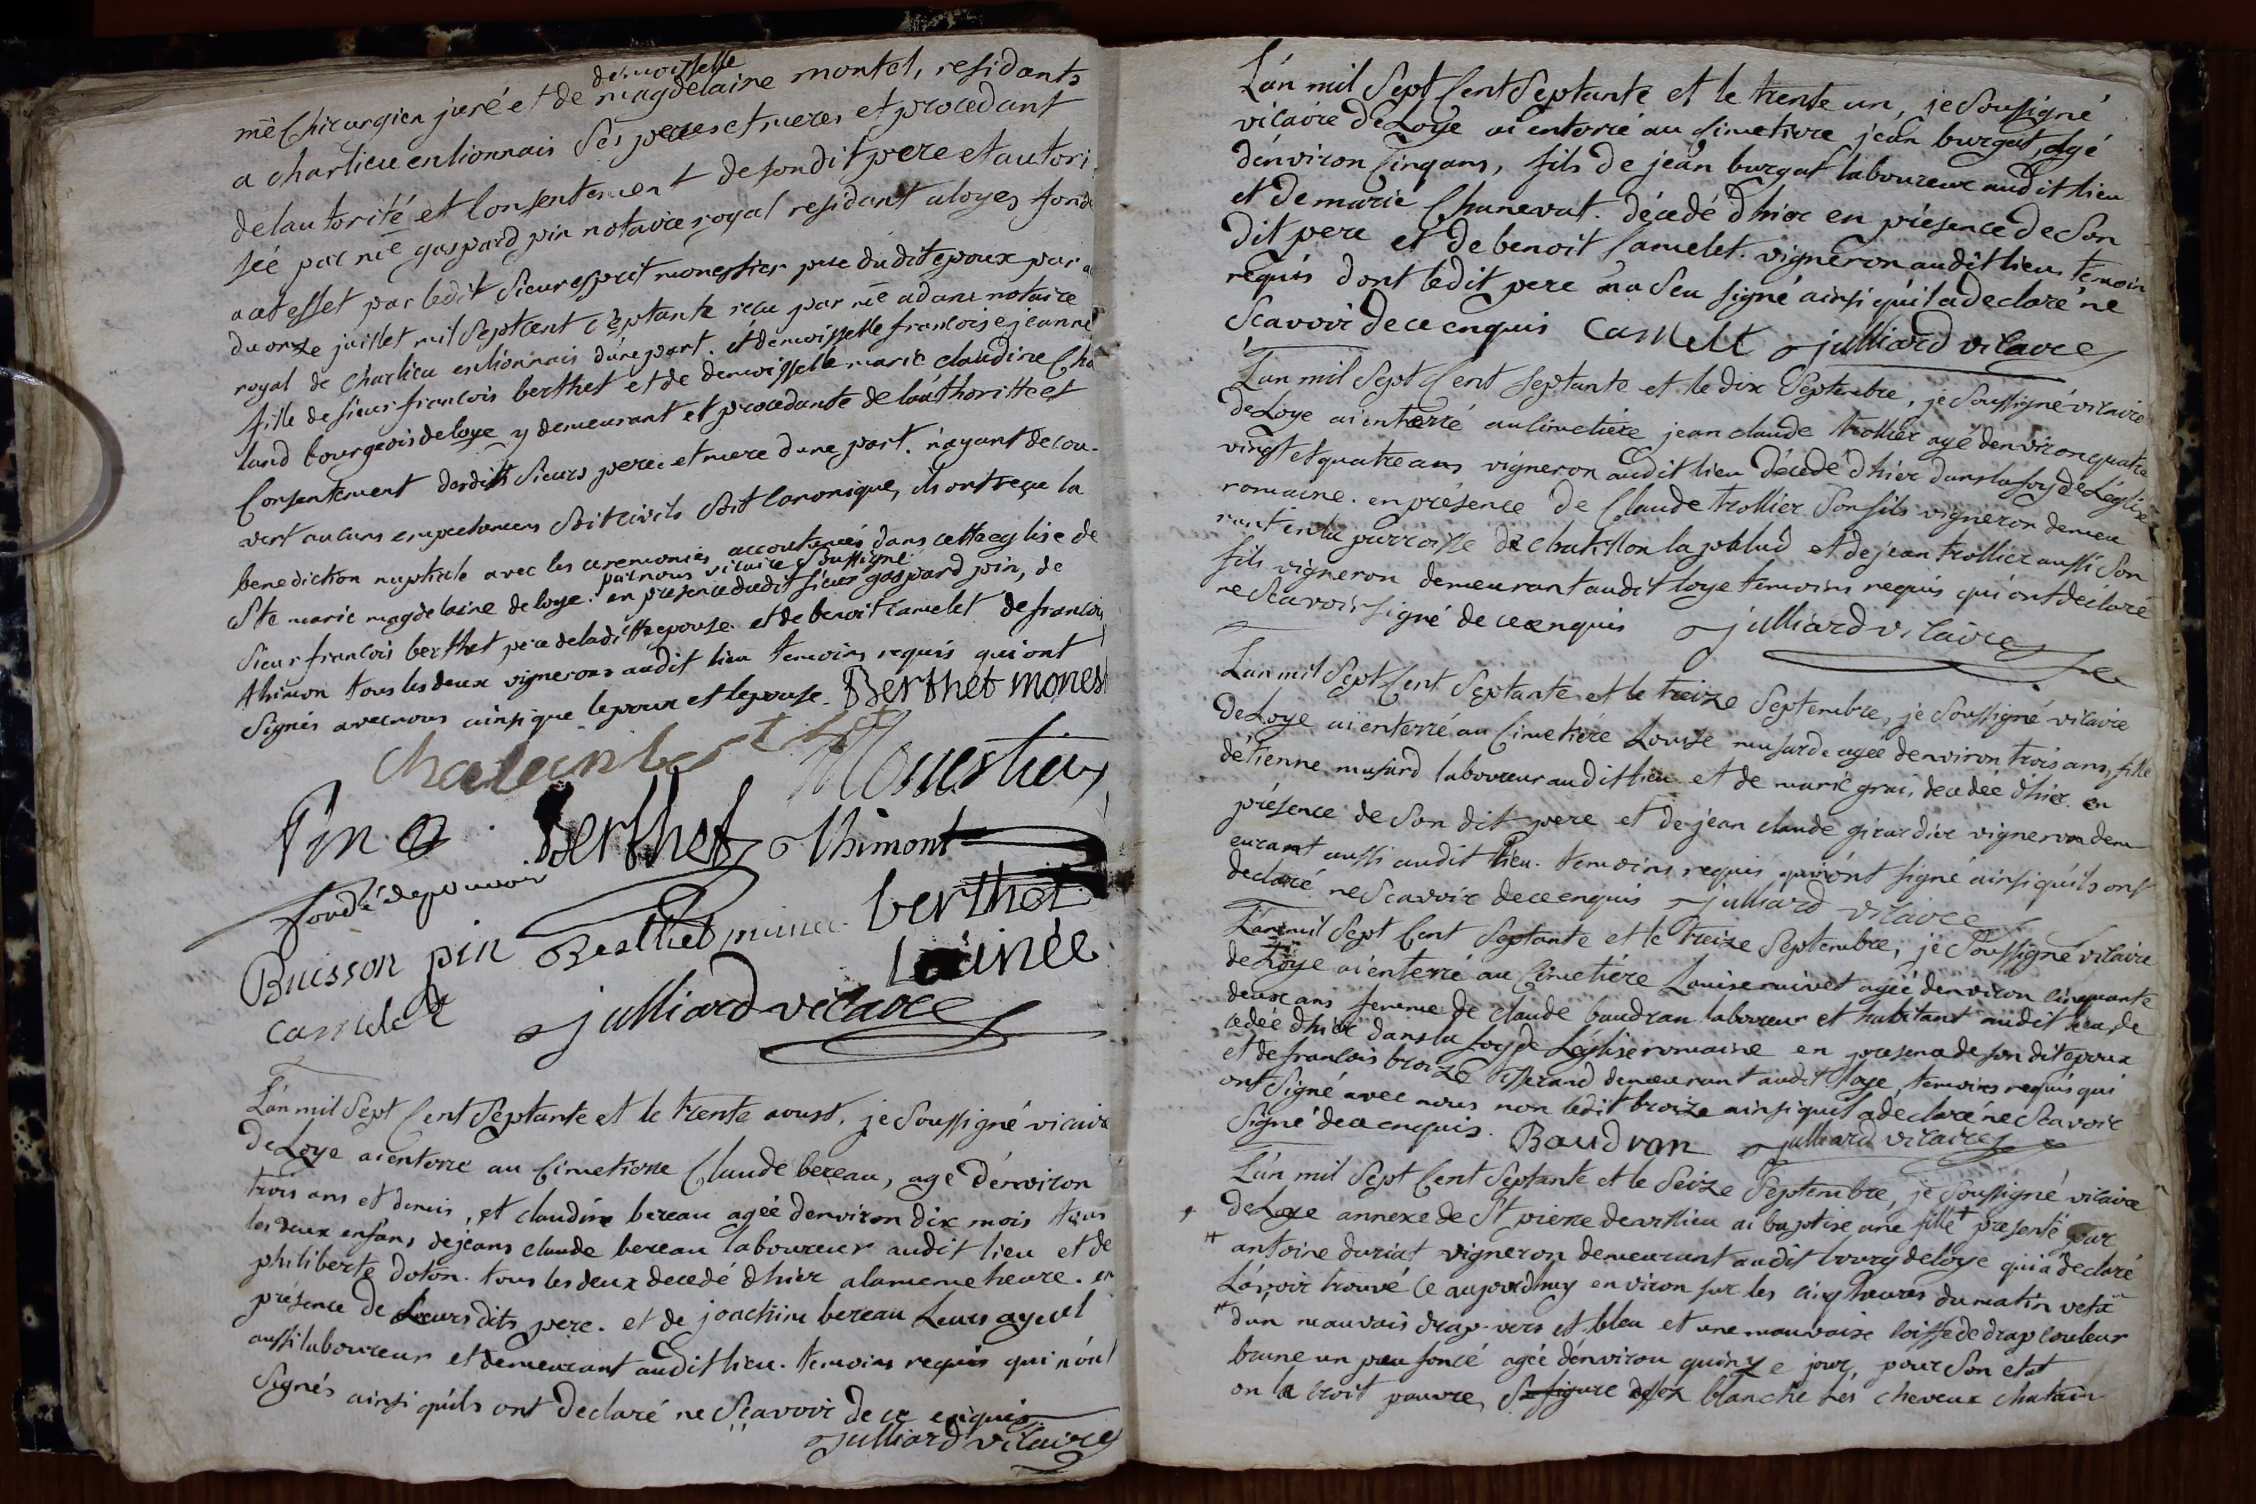 demoisselle
mê Chirurgien juré et de magdelaine montel, residants
a charlieu en lionnais Ses peres et meres et procedant
de lautorité et Consentement de sondit pere et autori
séé par mê gaspard pin notaire royal residant a loyes fondé
a cet esset par ledit Sieur esprit monestier pere dudit epoux par a
du onze juillet mil Sept cent septante recu par mê adam notaire
royal de Charlieu en lionnais dune part. ét demoisselle francoise jeanne
fille de sieur francois berthet et de demoisselle marie claudine Cha
land bourgeois de loye y demeurant et procedante de lauthoritté et
Consentement desdits Sieurs pere et mere dune part. n'ayant decou-
vert aucuns empechemens Soit civils Soit Canonique, ils ont reçu la
benediction nuptiale avec les ceremonies accoutumées dans cette eglise de
par nous vicaire Soussigné
Ste marie magdelaine de loye. en presence dudit sieur gaspard pin, de
Sieur francois berthet pere de laditte epouse et de benoit camelet de francois
thimon tous les deux vignerons audit lieu temoins requis qui ont
Signés avec nous ainsi que lepoux et lepouse. Berthet monest
Monestier
Pin Berthet Thimont
fondé de pouvoir
berthet
Buisson pin Berthet
Lainée
camelet julliard vicaire
L'an mil Sept Cent Septante et le trente aoust, je Soussigné vicaire
De Loye ai enterré au Cimetiere Claude bereau, agé d'environ
trois ans et demis, et claudine bereau agéé denviron dix mois tous
les deux enfans de jeans claude bereau laboureur audit lieu et de
philiberte doton. tous les deux decedé d'hier a la meme heure. en
présence de Leurs dits pere. et de joachim bereau Leurs ayeul
aussi laboureur et demeurant audit lieu. temoins requis qui n'ont
Signés ainsi qu'ils ont Declaré ne Sçavoir de ce enquis
julliard vicaire
L'an mil Sept Cent Septante et le trente un, je Soussigné
vicaire De Loye ai enterré au Cimetiere jean burgat, agé
d'environ Cinq ans, fils De jean burgat laboureur audit lieu
et De marie Chanevat. décedé D'hier en présence De Son
Dit pere et de benoit Camelet. vigneron audit lieu temoin
requis dont ledit pere n'a Seu signé ainsi qu'il a declaré ne
Scavoir de ce enquis camelet julliard vicaire
L'an mil Sept Cent Septante et le dix Septembre, je Soussigné vicaire
De Loye ai enterré au Cimetiére jean claude trollier agé denviron quatre
vingt et quatre ans vigneron audit lieu décedé d'hier dans la foy de L'eglise
romaine. en présence de Claude trollier Son fils vigneron demeu
rant en la parroisse de chatillon la palud et de jean trollier aussi Son
fils vigneron demeurant audit loye temoins requis qui ont declaré
ne Scavoir signé de ce enquis julliard vicaire
L'an mil Sept Cent Septante et le treize Septembre, je Soussigné vicaire
De Loye ai enterré au Cimetiére Louise musard agée denviron trois ans, fille
d'etienne musard laboureur audit lieu et de marie grai, decedéé d'hier. en
présence de Son dit pere et de jean claude girardier vigneron dem
eurant aussi audit lieu. temoins requis qui n'ont signé ainsi qu'ils ont
declaré ne Scavoir de ce enquis julliard vicaire
L'an mil Sept Cent Septante et le treize Septembre, je Soussigné vicaire
de Loye ai enterré au Cimetiére Louise nivet agéé denviron Cinquante
deux ans femme de claude baudran laboureur et habitant audit lieu, de
cedéé d'hier dans la foy de L'eglise romaine en presence de son dit epoux
et de francois broize demeurant audit loye temoins requis qui
ont Signé avec nous non ledit broize ainsi quil a declaré ne Scavoir
Signé de ce enquis. Baudran julliard vicaire
L'an mil Sept Cent Septante et le Seize Septembre, je Soussigné vicaire
de Loye annexe de St pierre de villieu ai baptise une fille + presenté par
antoine duriat vigneron demeurant audit bourg de loye qui a declaré
L'avoir trouvé Ce aujourdhuy environ sur les cinq heures du matin vetu
dun mauvais drap vers et bleu et une mauvaise Coiffe de drap Couleur
brune un peu foncé agéé d'environ quinze jour, pour Son etat
on la croit pauvre, Sa figure assez blanche les cheveux chatain